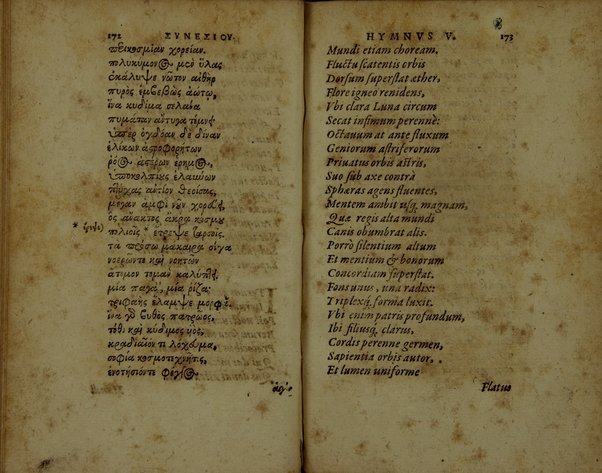 172 ΣΥΝΕΣΙΟΥ.
πολυκύμονος μετὰ ὕλας
ἐκάλυψε νῶτον αἰθὴρ
πυρὸς ἐμβεβὼς ἀώτῳ,
ἵνα κυδίμα σελάνα
πυμάταν ἄντυγα τέμνει.
ὑπὲρ ὀγδόαν δὲ δίναν
ἑλίκων ἀστροφορήτων
ῥόος ἀστέρων ἔρημος,
ὑποκολπίους ἐλαύνων
πτύχας ἀντίον θεοίσας,
μέγαν ἀμφὶ νοῦν χορεύει,
ὃς ἄνακτος ἄκρα κόσμου
πολιοῖς * ἔτρεψε ταρσοῖς.
τὰ πρόσω μάκαιρα σιγὰ
νοερῶν τε καὶ νοητῶν
ἄτομον τομὰν καλύπτει.
μία παγὰ, μία ῥίζα:
τριφαὴς ἔλαμψε μορφά.
ἵνα γὰρ βυθὸς πατρῷος,
τόθι καὶ κύδιμος υἱὸς,
κραδιαῖόν τι λόχευμα,
σοφία κοσμοτεχνῖτις,
ἑνοτήσιόν τε φέγγος
HYMNVS V. 173
Mundi etiam choream.
Fluctu scatentis orbis
Dorsum superstat æther,
Flore igneo renidens,
Vbi clara Luna circum
Secat infimum perenne:
Octauum at ante fluxum
Geniorum astriferorum
Priuatus orbis astris,
Suo sub axe contrà
Sphæras agens fluentes,
Mentem ambit usq. magnam,
Quæ regis alta mundi
Canis obumbrat alis.
Porrò silentium altum
Et mentium & bonorum
Concordiam superstat.
Fons unus, una radix:
Triplexq́, forma luxit.
Vbi enim patris profundum,
Ibi filiusq́, clarus,
Cordis perenne germen,
Sapientia orbis autor,
Et lumen uniforme
Flatus